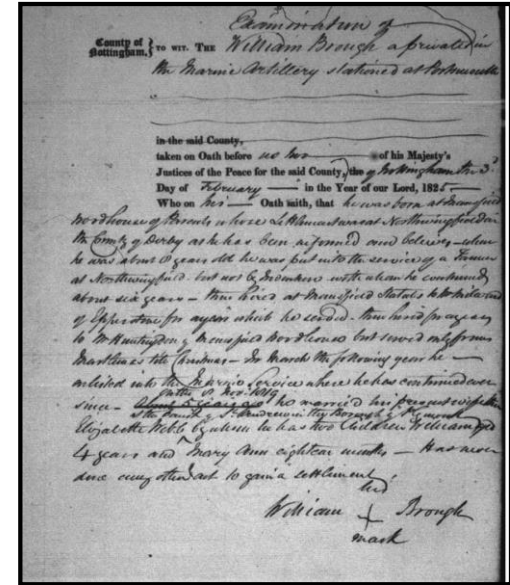 Examination of
County of Nottingham, } TO WIT. THE William Brough a private in
the Marine Artillery stationed at Portsmouth
in the said County,
taken on Oath before us two of his Majesty's
Justices of the Peace for the said County, the of Nottingham the 3d
Day of February in the Year of our Lord, 1825
Who on his Oath saith, that he was born at Mansfield
Woodhouse of Parents whose Settlement was at Northwingfield in
the County of Derby as he has been informed and believes - when
he was about 10 years old he was put into the service of a Farmer
at Northwingfield but not by Indenture with whom he continued
about six years - then hired at Mansfield Statutes to
of Epperstone for a year which he served - then hired for a year
to Mr Huntingdon of Mansfield Woodhouse but served only from
Martlemas till Christmas - In March the following year he
enlisted into the Marine Service where he has continued ever
on the 8 Novr. 1819
since - About 5 years ago he married his present wife
at the Parish of St. Andrew in the Borough of Plymouth
Elizabeth Webb by whom he has two Children William aged
4 years and Mary Ann eighteen months - Has never
done any other act to gain a settlement
his
William + Brough
mark